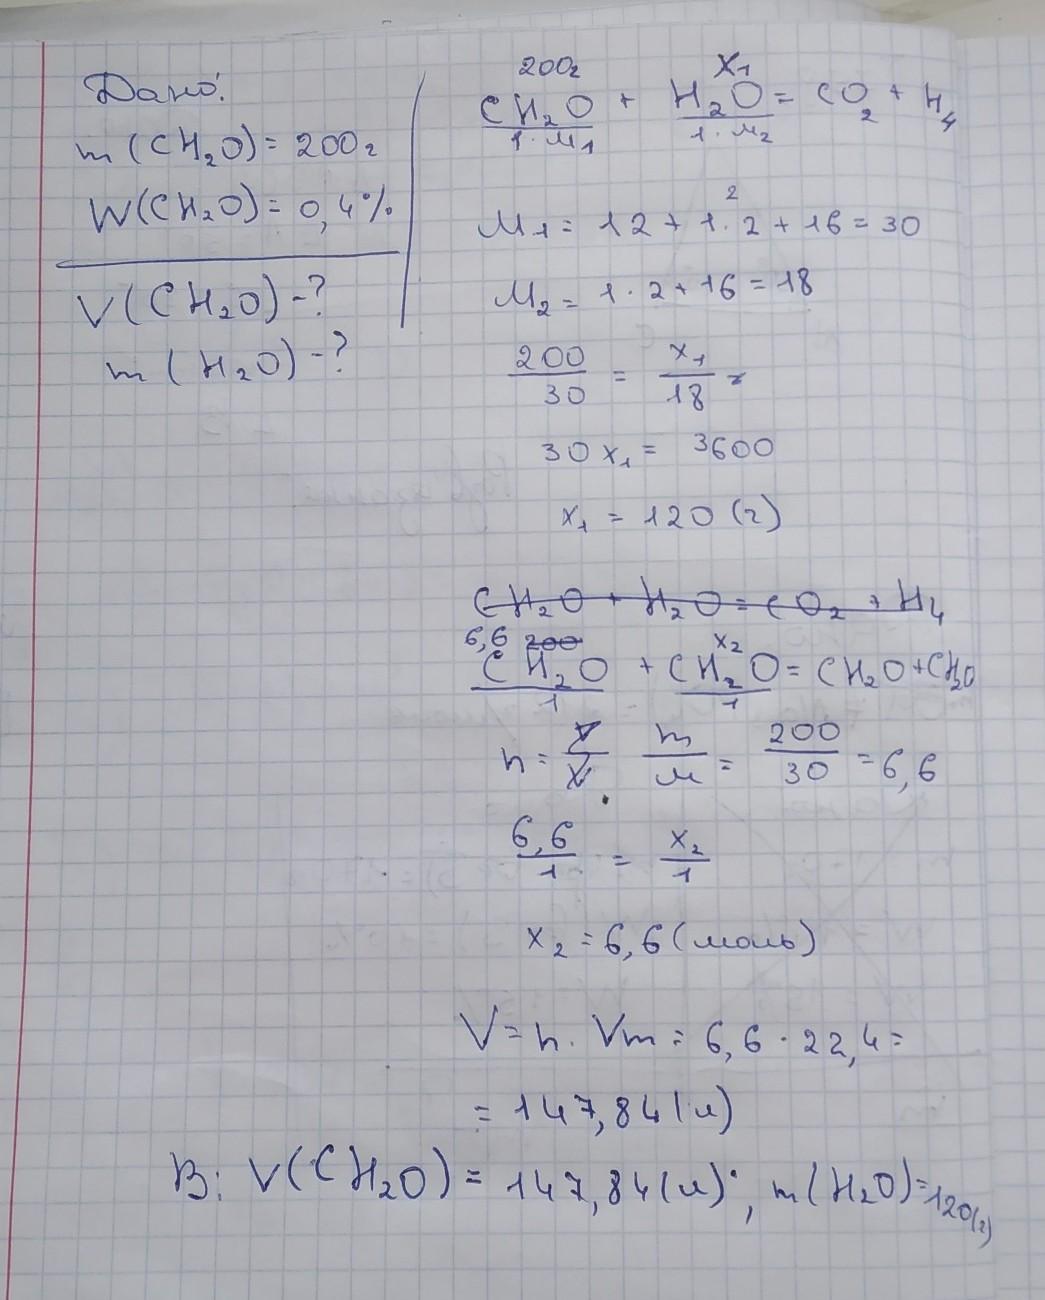 Дано:
m (CH2O) = 200г
W(CH2O) = 0,4%
V(CH2O) - ?
m (H2O) - ?
200г X1
CH2O + H2O = CO2 + H4
1·M1 1·M2
2
M1 = 12 + 1·2 + 16 = 30
M2 = 1·2 + 16 = 18
200/30 = x1/18
30x1 = 3600
x1 = 120 (г)
CH2O + H2O = CO2 + H4
6,6 200 x2
CH2O + CH2O = CH2O + CH2O
1 1
n = V/V m/M = 200/30 = 6,6
6,6/1 = x2/1
x2 = 6,6 (моль)
V = n · Vm = 6,6 · 22,4 =
= 147,84 (л)
В: V(CH2O) = 147,84 (л); m(H2O) = 120(г)